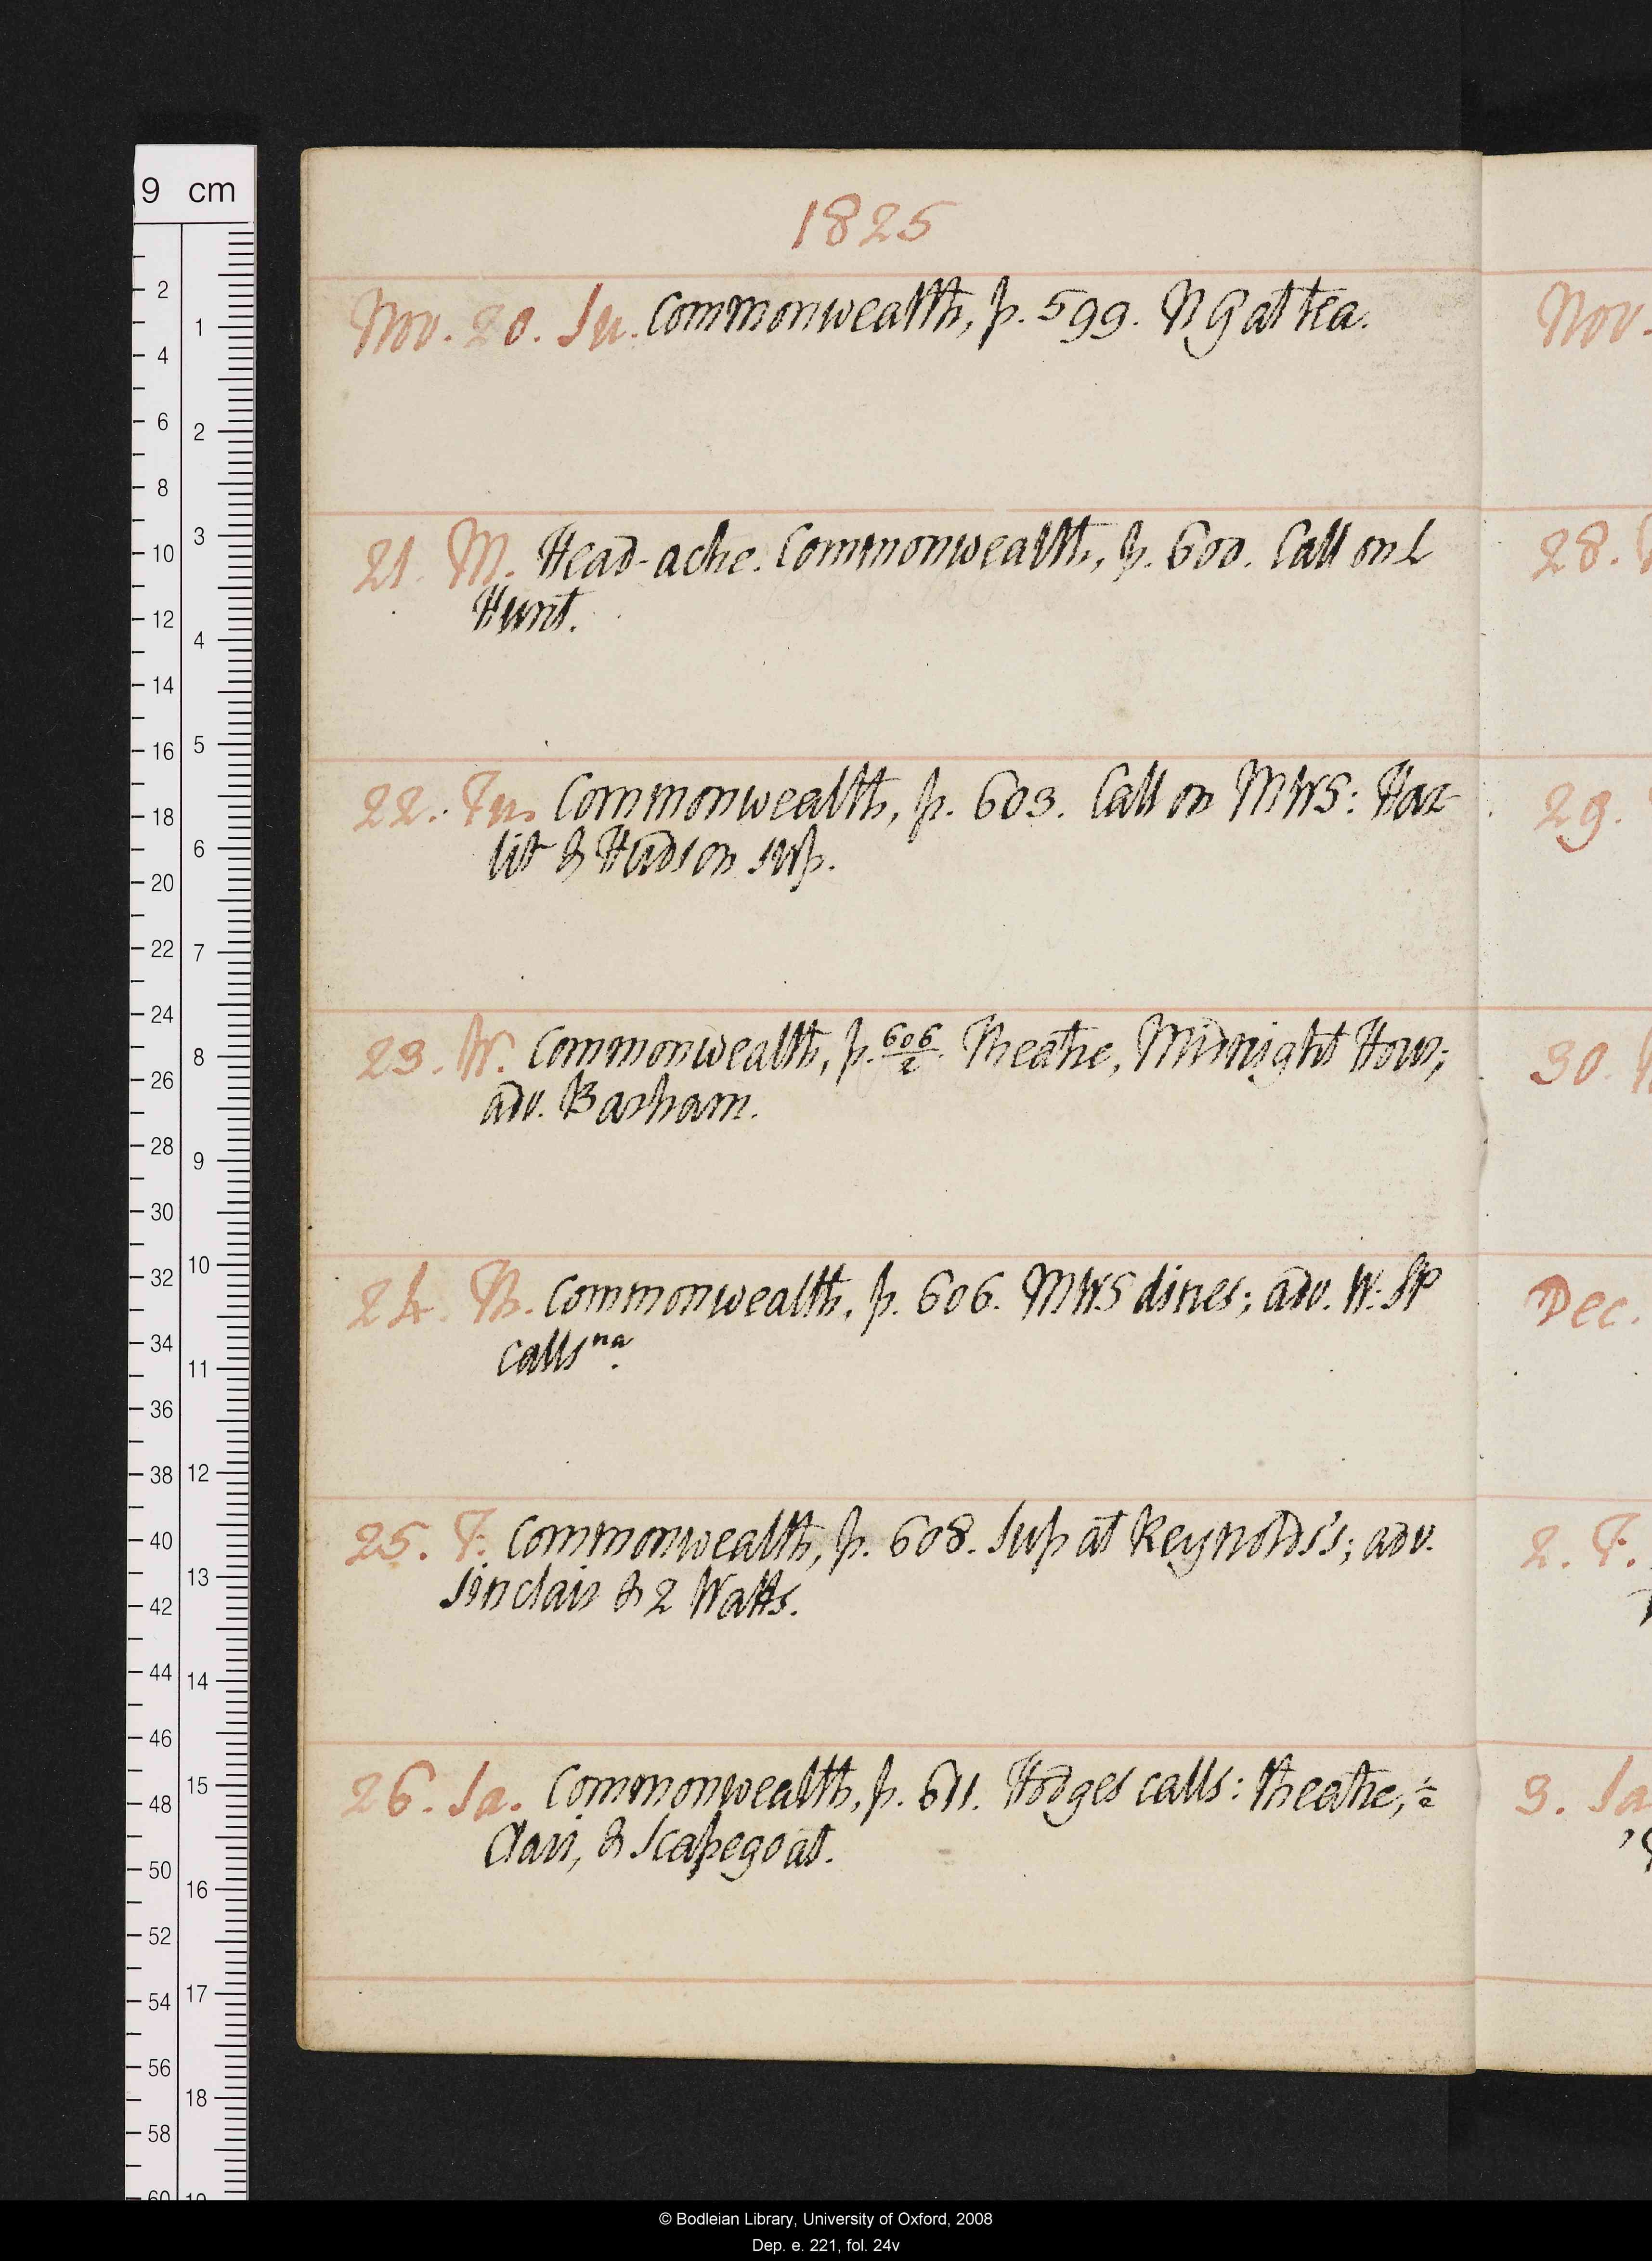 9 cm
1825
Nov. 20. Su. Commonwealth, p. 599. N G at tea.
21. M. Head-ache. Commonwealth, p. 600. Call on L
Hunt.
22. Tu. Commonwealth, p. 603. Call on MWS: Haz-
lit & Hudson sup.
23. W. Commonwealth, p. 606/2. Theatre, Midnight Hour;
adv. Basham.
24. Th. Commonwealth, p. 606. MWS dines; adv. W: HP
calls na.
25. F. Commonwealth, p. 608. Sup at Reynolds's; adv.
Sinclair & 2 Watts.
26. Sa. Commonwealth, p. 611. Hodges calls: Theatre, ½
Clari, & Scapegoat.
Nov.
28.
29.
30.
Dec.
2. F.
3. Sa
2
4
6
8
10
12
14
16
18
20
22
24
26
28
30
32
34
36
38
40
42
44
46
48
50
52
54
56
58
60
1
2
3
4
5
6
7
8
9
10
11
12
13
14
15
16
17
18
19
© Bodleian Library, University of Oxford, 2008
Dep. e. 221, fol. 24v